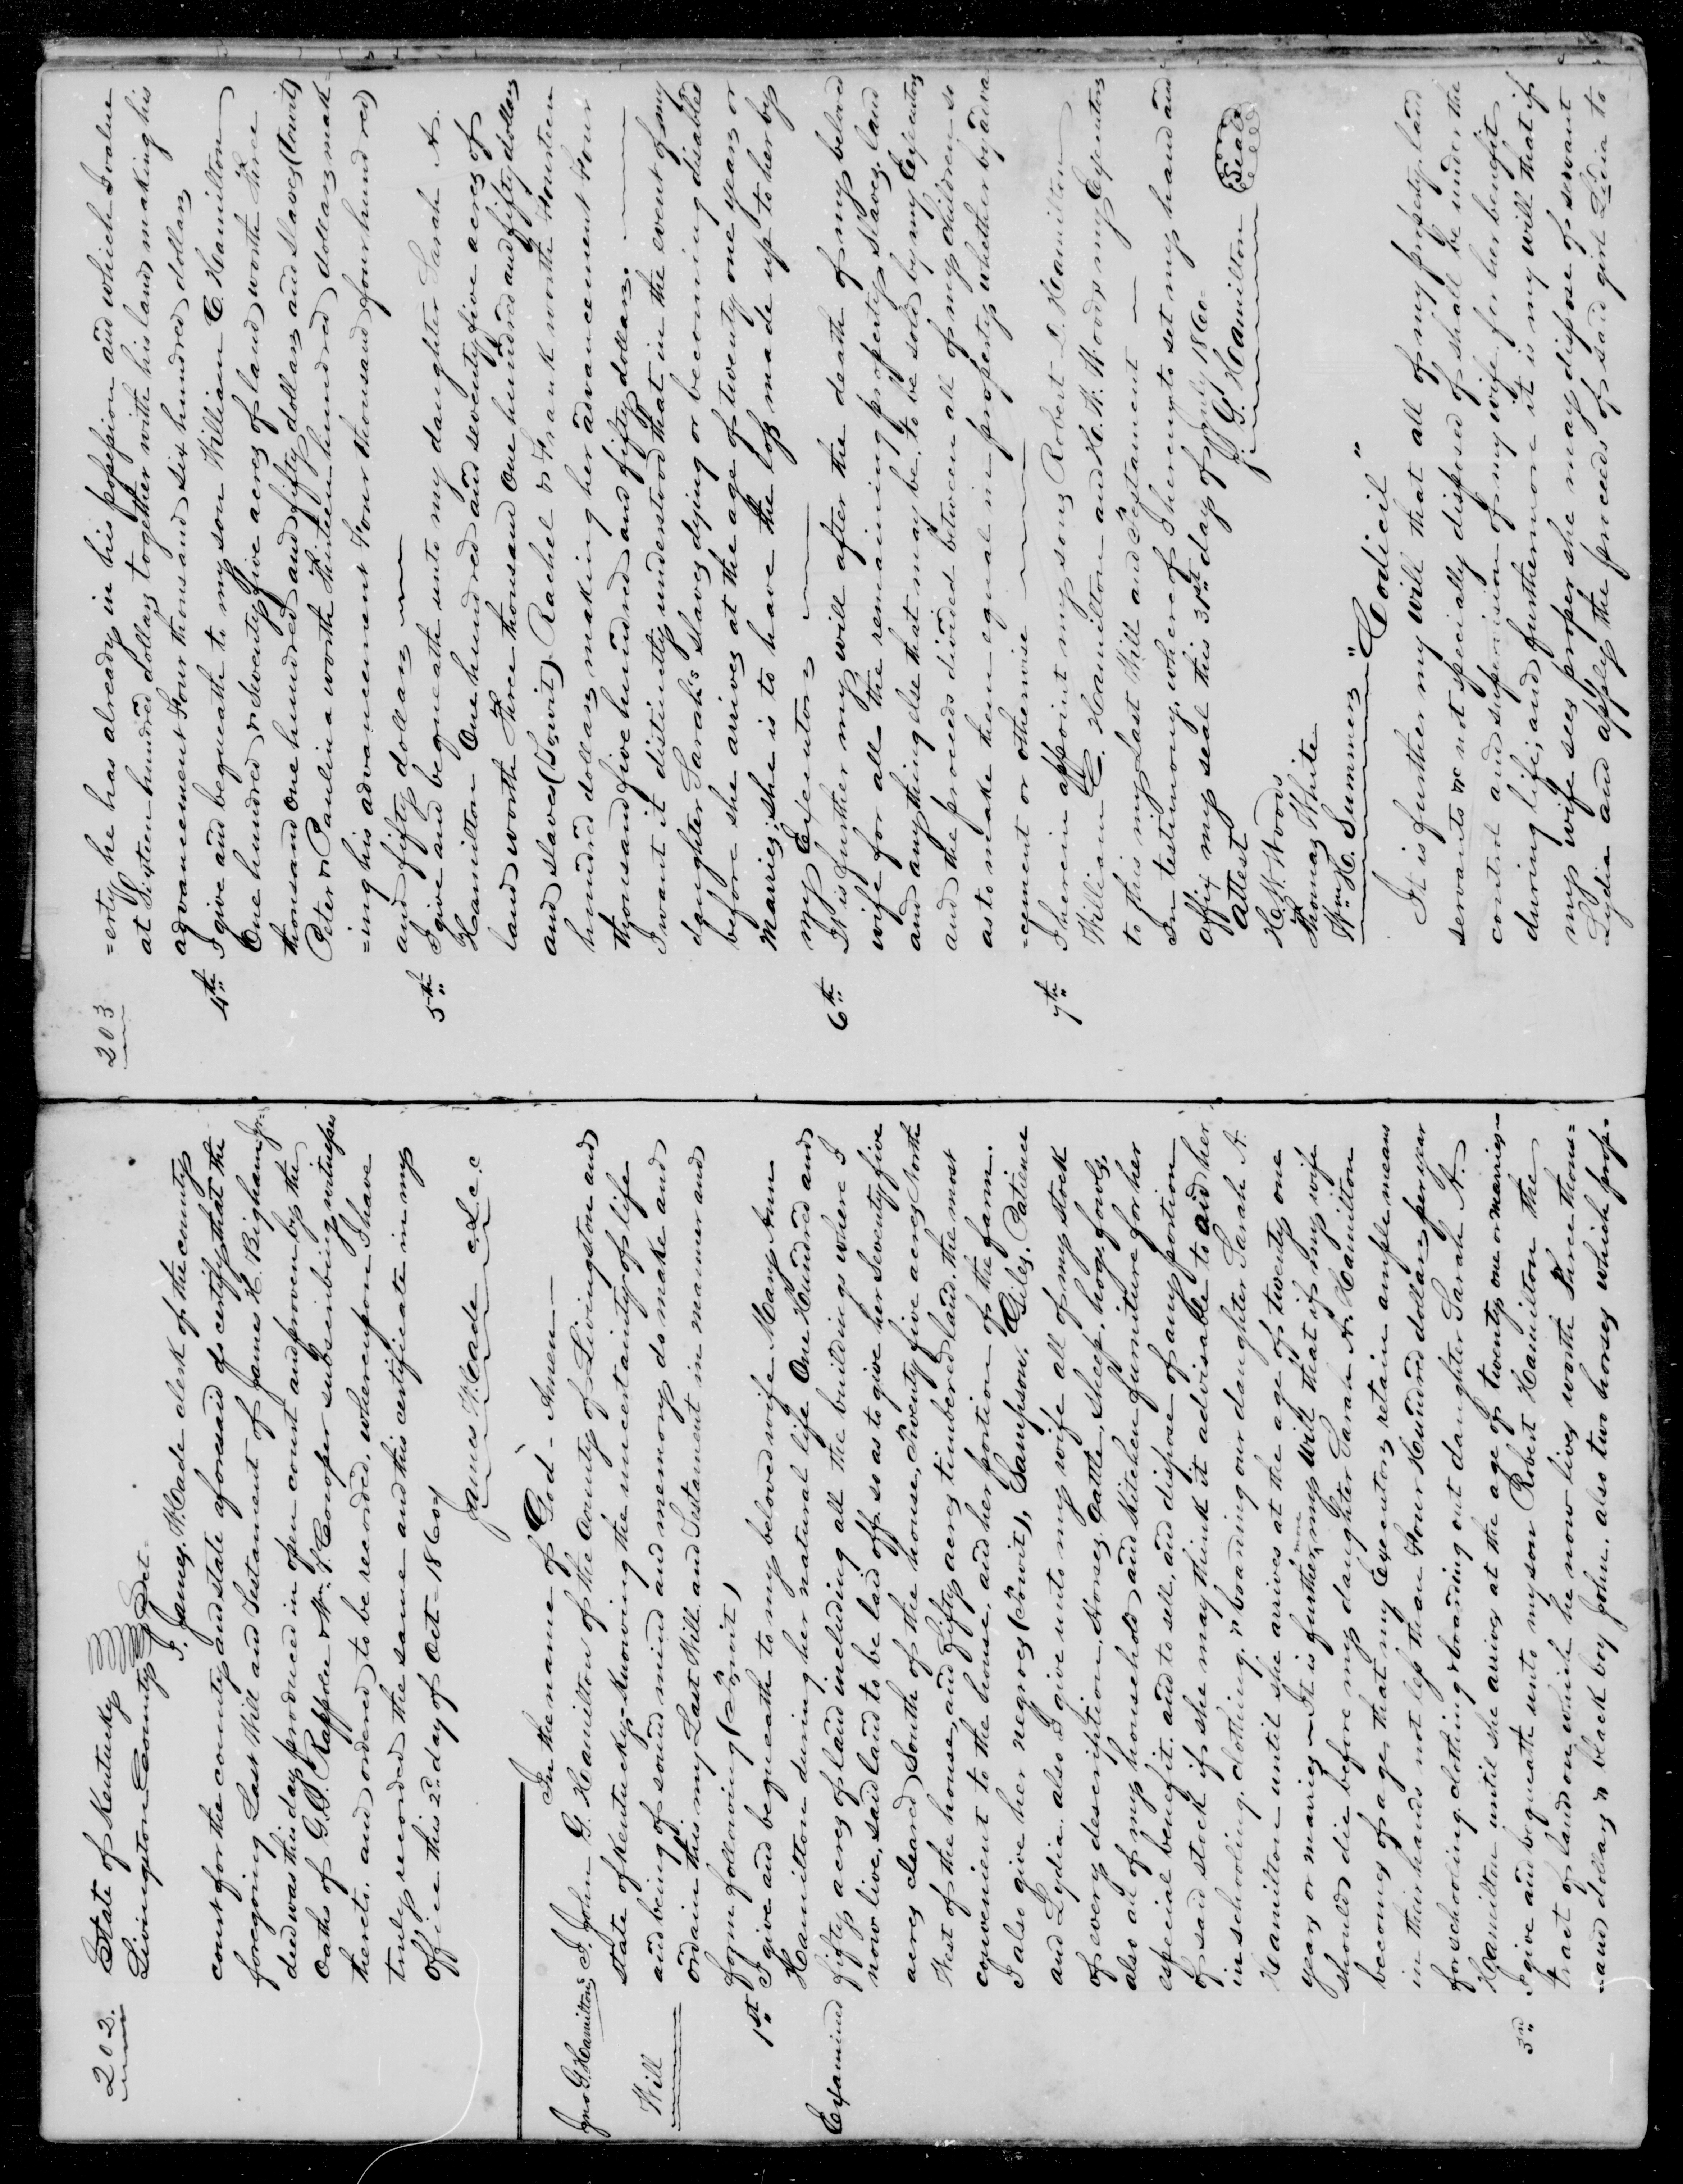 202.
State of Kentucky
Livingston County Sct.
I, James W. Cade clerk of the county
court for the county and state aforesaid do certify that the
foregoing Last Will and Testament of James H. Bigham
ded was this day produced in open court and proven by the
Oaths of G. G. Rappolee & W. P. Conoper subscribing witnesses
thereto, and ordered to be recorded, whereupon I have
truly recorded the same and this certificate in my
office this 2d. day of Oct- 1860
James W. Cade c.L.c.c
Jno G. Hamiltons
Will
In the name of God- Amen—
I, John G. Hamilton of the County of Livingston and
state of Kentucky- knowing the uncertainty of life
and being of sound mind and memory do make and
ordain this my Last Will and Testament in manner and
form following (Towit)
1st. I give and bequeath to my beloved wife Mary Ann
Hamilton during her natural life One Hundred and
Examined
fifty acres of land including all the buildings where I
now live, said land to be laid off so as to give her Seventy five
acres cleared South of the house, Twenty five acres North
West of the house, and Fifty acres timbered land. the most
convenient to the house, and her portion of the farm.
I also give her negroes (Towit), Sampson, Giles, Patience
and Lydia. also I give unto my wife all of my stock
of every description. Horses, Cattle, Sheep, hogs, fowls,
also all of my household and Kitchen furniture for her
especial benefit. and to sell, and dispose of any portion
of said stock if she may think it advisable to aid her
in schooling, clothing, & boarding our daughter Sarah A.
Hamilton until she arrives at the age of twenty one
years or marries— It is further more my will that if my wife
should die before my daughter Sarah A. Hamilton
becomes of age, that my Executors retain ample means
in their hands not less than Four Hundred dollars per year
for schooling, clothing & boarding out daughter Sarah A.
Hamilton until she arrives at the age of twenty one or marries—
3rd. I give and bequeath unto my son Robert Hamilton the
tract of land on which he now lives worth Three thous=
=and dollars & black boy John. also two horses which prop-
203
=erty he has already in his possession and which I value
at Sixteen hundred dollars together with his land making his
advancement Four thousand six hundred dollars
4th. I give and bequeath to my son William C. Hamilton
One hundred & Seventy five acres of land worth Three
thousand One hundred and fifty dollars and Slaves (Towit)
Peter & Paulina worth Thirteen hundred dollars mak-
=ing his advancement Four thousand four hundred
and fifty dollars —
5th. I give and bequeath unto my daughter Sarah A.
Hamilton One hundred and seventy five acres of
land worth Three thousand One hundred and fifty dollars
and slaves (Towit) Rachel & Frank worth Fourteen
hundred dollars making her advancement Four
thousand five hundred and fifty dollars. —
I want it distinctly understood that in the event of my
daughter Sarah's slaves dying or becoming disabled
before she arrives at the age of twenty one years or
Marries, she is to have the loss made up to her by
my Executors —
6th. It is further my will after the death of my beloved
wife for all the remaining property Slaves, land
and any thing else that may be, to be sold by my Executors
and the proceeds divided between all of my children so
as to make them equal in property whether by adva
=cement or otherwise —
7th. I herein appoint my sons Robert L. Hamilton
William C. Hamilton and H. W. Woods my Executors
to this my Last Will and Testament —
In testimony whereof I hereunto set my hand and
affix my seal this 31st. day of July 1860-
Attest
J. G. Hamilton Seal
H. W. Woods
Thomas White
Wm. H. Summers
"Codicil"
It is further my will that all of my property, land
servants &c not specially disposed of shall be under the
control and supervision of my wife for her benefit
during life; and furthermore it is my will that if
my wife sees proper she may dispose of servant
Lydia and apply the proceeds of said girl Lidia to